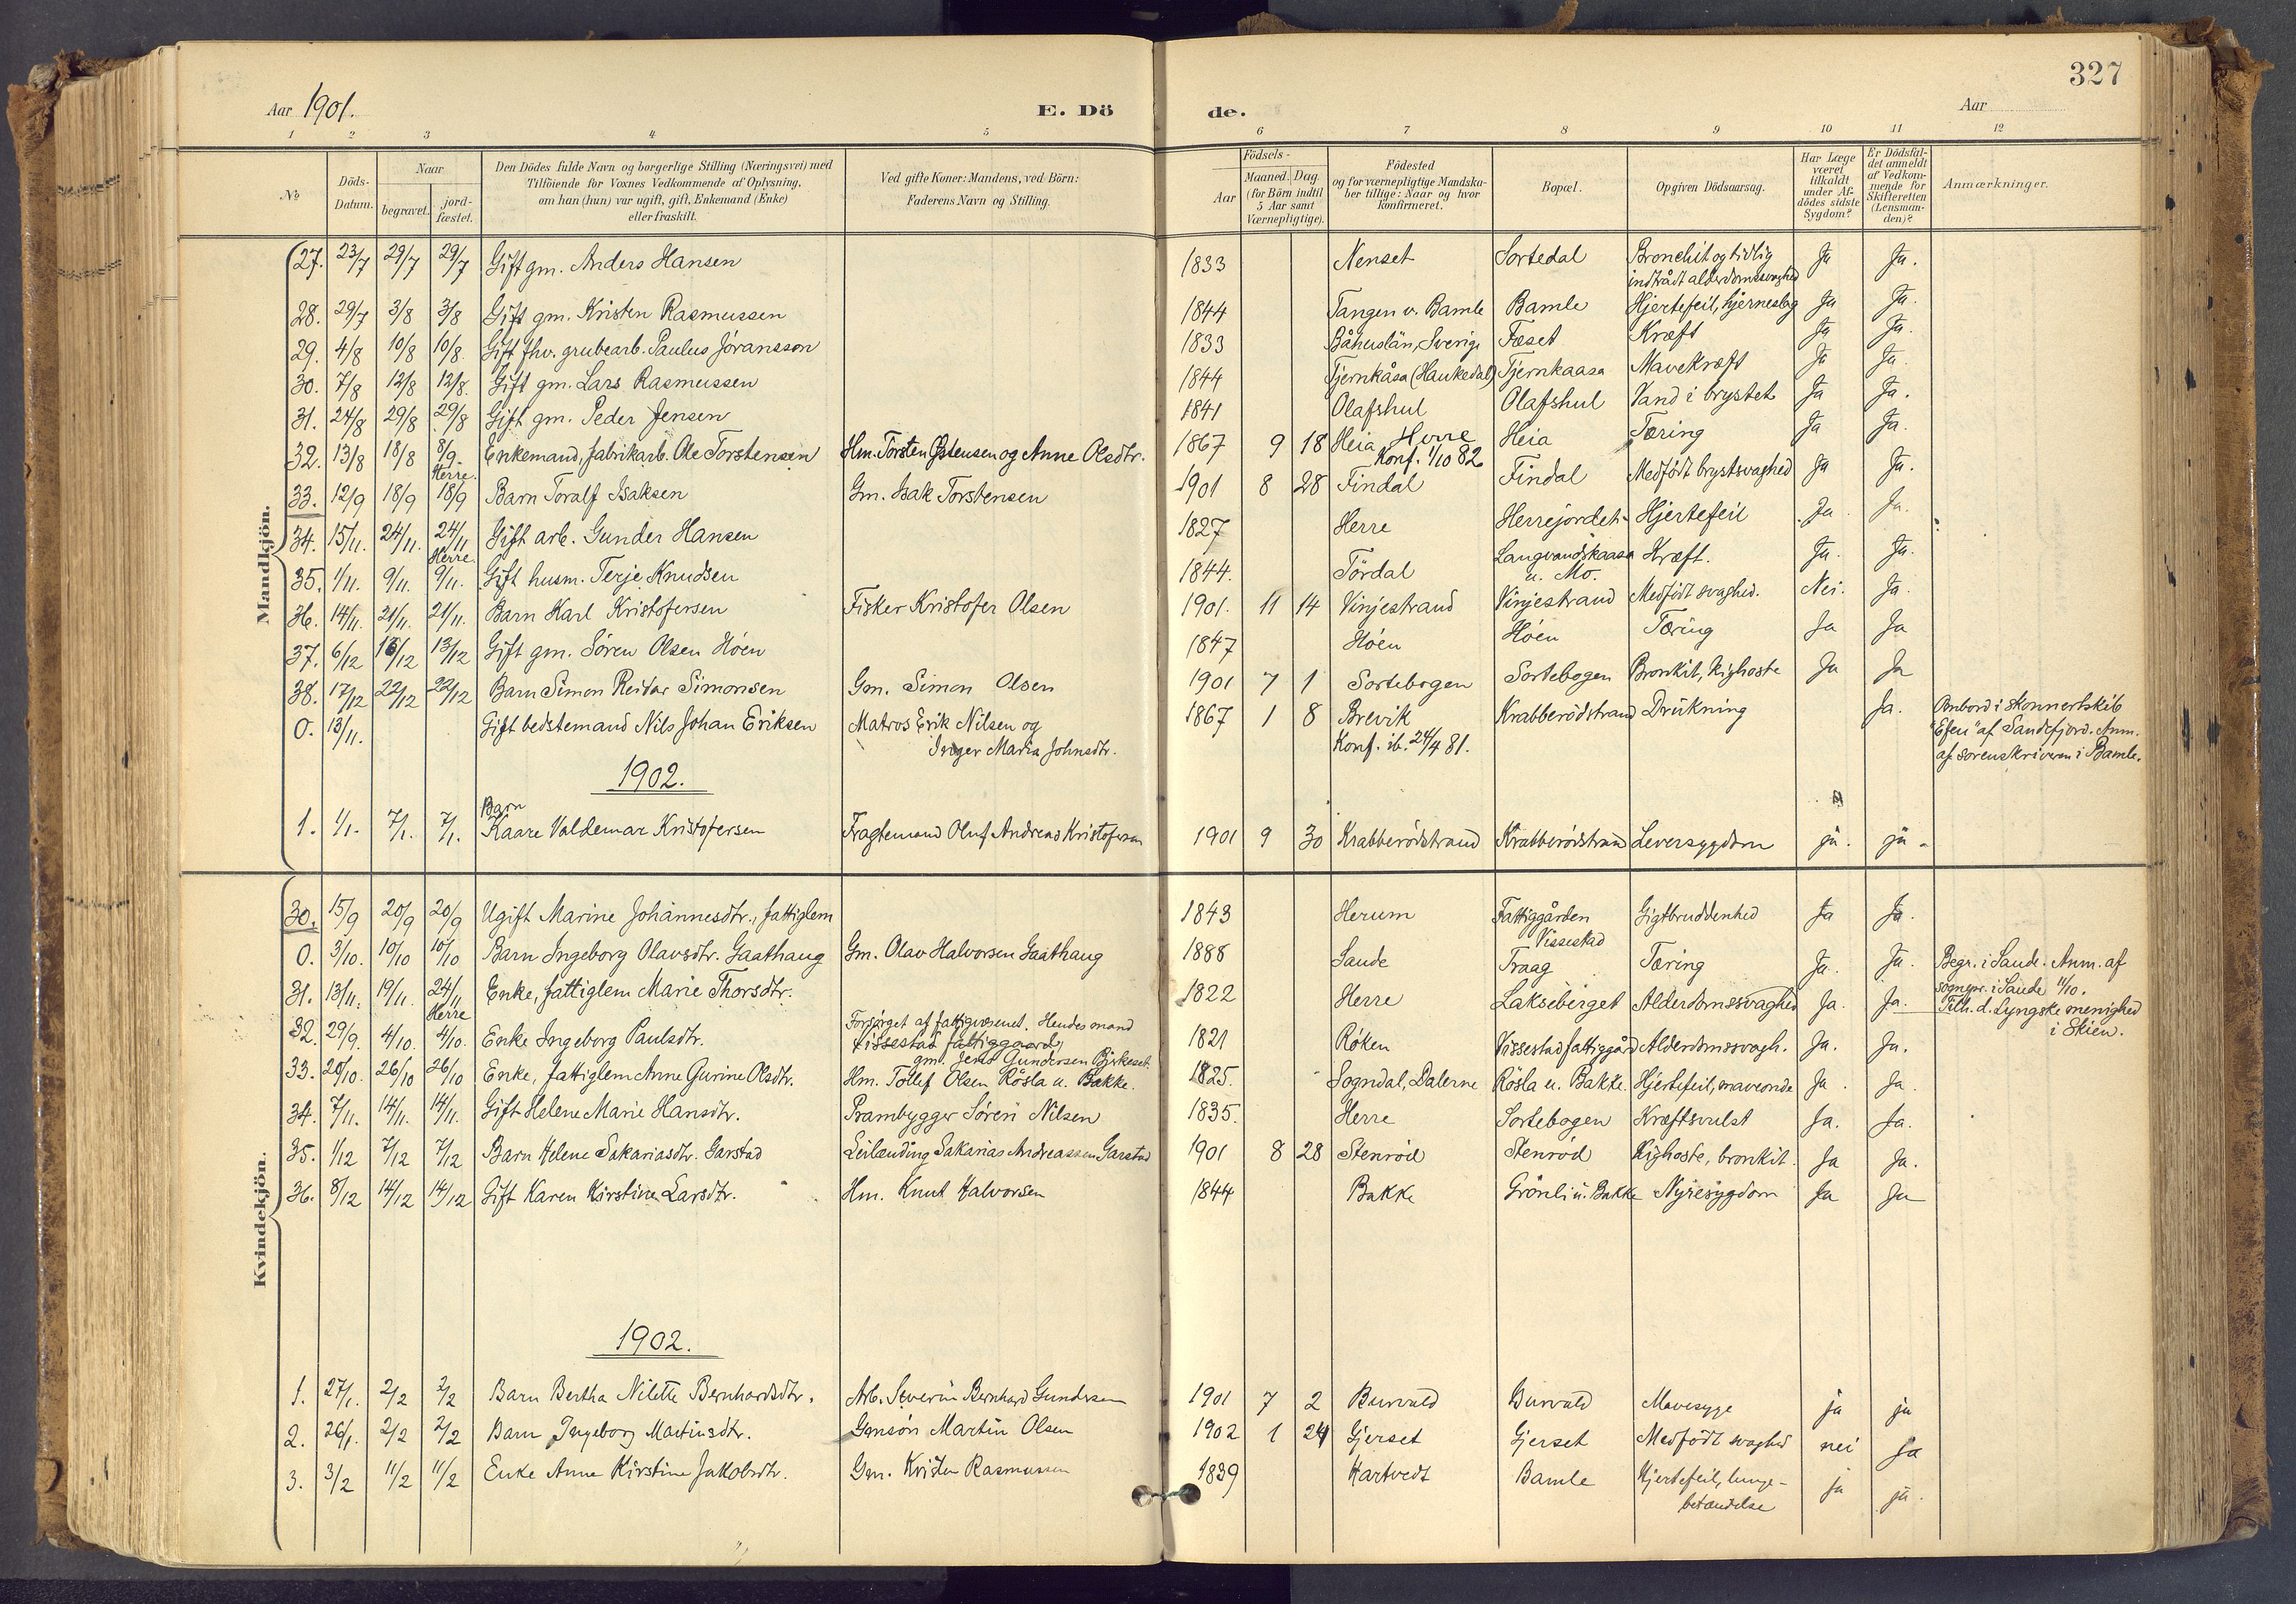 327
Aar 1901.
E. Dö
de.
Aar
1 2 3 4 5 6 7 8 9 10 11 12
№
Döds-Datum.
Naar
begravet.
jord-fæstet.
Den Dödes fulde Navn og borgerlige Stilling (Næringsvei) med
Tilföiende for Voxnes Vedkommende af Oplysning,
om han (hun) var ugift, gift, Enkemand (Enke)
eller fraskilt.
Ved gifte Koner: Mandens, ved Börn:
Faderens Navn og Stilling.
Födsels-
Aar
Maaned. Dag.
(for Börn indtil
5 Aar samt
Værnepligtige).
Födested
og for værnepligtige Mandska-
ber tillige: Naar og hvor
konfirmeret.
Bopæl.
Opgiven Dödsaarsag.
Har Læge
været
tilkaldt
under Af-
dödes sidste
Sygdom?
Er Dödsfal-
det anmeldt
af Vedkom-
mende for
Skifteretten
(Lensman-
den)?
Anmærkninger.
Mandkjön.
27. 23/7 29/7 29/7 Gift gm. Anders Hansen 1833 Nenset Sortedal Bronchit og tidlig indtrådt alderdomssvaghed Ja Ja.
28. 29/7 3/8 3/8 Gift gm. Kristen Rasmussen 1844 Tangen v. Bamle Bamle Hjertefeil, hjerneslag Ja Ja.
29. 4/8 10/8 10/8. Gift fhv. grubearb. Paulus Jöransson 1833 Båhuslän, Sverig Fæset Kræft Ja Ja.
30. 7/8 12/8 12/8. Gift gm. Lars Rasmussen 1844 Tjernkåsa (Haukedal) Tjernkaasa Mavekræft Ja Ja.
31. 24/8 29/8 29/8 Gift gm. Peder Jensen 1841 Olafshul Olafshul Vand i brystet Ja Ja.
32. 13/8 18/8 8/9 Herre. Enkemand, fabrikarb. Ole Torstensen Hm. Torsten Østensen og Anne Olsdtr. 1867 9 18 Heia Herre Konf. 1/10 82 Heia Tæring Ja Ja.
33. 12/9 18/9 18/9 Barn Toralf Isaksen Gm. Isak Torstensen 1901 8 28 Findal Findal Medfödt brystsvaghed Ja Ja.
34. 15/11. 24/11. 24/11 Herre. Gift arb. Gunder Hansen 1827 Herre Herrejordet Hjertefeil Ja Ja.
35. 1/11. 9/11. 9/11. Gift husm. Terje Knudsen 1844. Tördal Langvandskaasa u. Mo. Kræft. Ja. Ja.
36. 14/11. 21/11. 21/11. Barn Karl Kristofersen Fisker Kristofer Olsen 1901. 11 14 Vinjestrand Vinjestrand Medfödt svaghed. Nei. Ja.
37. 6/12 13/12 13/12 Gift gm. Sören Olsen Höen 1847 Höen Höen Tæring Ja Ja
38. 17/12 22/12 22/12 Barn Simon Reidar Simonsen Gm. Simon Olsen 1901 7 1 Sortebogen Sortebogen Bronkit, kighoste Ja Ja
0. 13/11. Gift bedstemand Nils Johan Eriksen Matros Erik Nilsen og Inger Maria Johnsdtr. 1867 1 8 Brevik Konf. ib. 24/4 81. Krabberödstrand Drukning Ja. Ombord i skonnertskib "Efeu" af Sandefjord. Anm. af sorenskriveren i Bamle.
1902.
1. 1/1. 7/1. 7/1. Barn Kaare Valdemar Kristofersen Fragtemand Oluf Andreas Kristofersen 1901 9 30 Krabberödstrand Krabberödstrand Leversygdom ja. ja.
Kvindekjön.
30. 15/9 20/9 20/9 Ugift Marine Johannesdtr., fattiglem 1843 Herum Fattiggården Vissestad Gigtbruddenhed Ja Ja.
0. 3/10. 10/10 10/10 Barn Ingeborg Olavsdtr. Gaathaug Gm. Olav Halvorsen Gaathaug 1888 Sande Traag Tæring Ja. Ja. Begr. i Sande. Anm. af sognepr. i Sande 4/10.
31. 13/11. 19/11. 24/11 Herre Enke, fattiglem Marie Thorsdtr. 1822 Herre Lakseberget Alderdomssvaghed Ja. Ja. Tilh. d. Lyngske menighed i Skien.
32. 29/9. 4/10. 4/10. Enke Ingeborg Paulsdtr. Forsörget af fattigvæsenet. Hendes mand Vissestad fattiggaard, gm. Jens Gundersen Bjerkeset. 1821 Röken Vissestad fattiggård Alderdomssvagh. Ja. Ja.
33. 20/10. 26/10 26/10 Enke, fattiglem Anne Gurine Olsdtr. Hm. Tollef Olsen Rösla u. Bakke. 1825. Sogndal, Dalerne Rösla u. Bakke. Hjertefeil, maveonde Ja. Ja.
34. 7/11. 14/11. 14/11. Gift Helene Marie Hansdtr. Prambygger Sören Nilsen 1835. Herre Sortebogen Kræftsvulst Ja. Ja.
35. 1/12 7/12 7/12 Barn Helene Sakariasdtr. Garstad Leilænding Sakarias Andreassen Garstad 1901 8 28 Stenröd Stenröd Kighoste, bronkit. Ja Ja.
36. 8/12 14/12 14/12 Gift Karen Kirstine Larsdtr. Hm. Knut Halvorsen 1844 Bakke Grönli u. Bakke Nyresygdom Ja Ja
1902.
1. 27/1. 2/2 2/2 Barn Bertha Nilette Bernhardsdtr. Arb. Severin Bernhard Gundersen 1901 7 2 Burvald Burvald Mavesyge ja ja
2. 26/1. 2/2 2/2 Barn Ingeborg Martinsdtr. Gmsön Martin Olsen 1902 1 24 Gjerset Gjerset Medfödt svaghed nei ja
3. 3/2 11/2 11/2 Enke Anne Kirstine Jakobsdtr. Gm. Kristen Rasmussen 1839 Hartvedt Bamle Hjertefeil, lunge-betændelse ja ja.